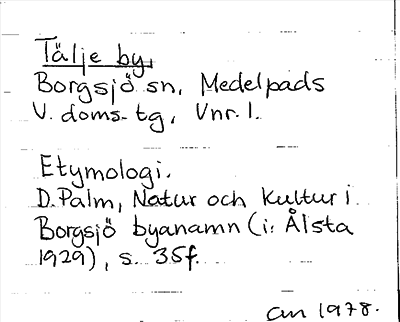 Tälje by,
Borgsjö sn, Medelpads
V. doms. tg, Vnr. 1.
Etymologi.
D. Palm, Natur och kultur i
Borgsjö byanamn (i: Ålsta
1929), s. 35f.
an 1978.